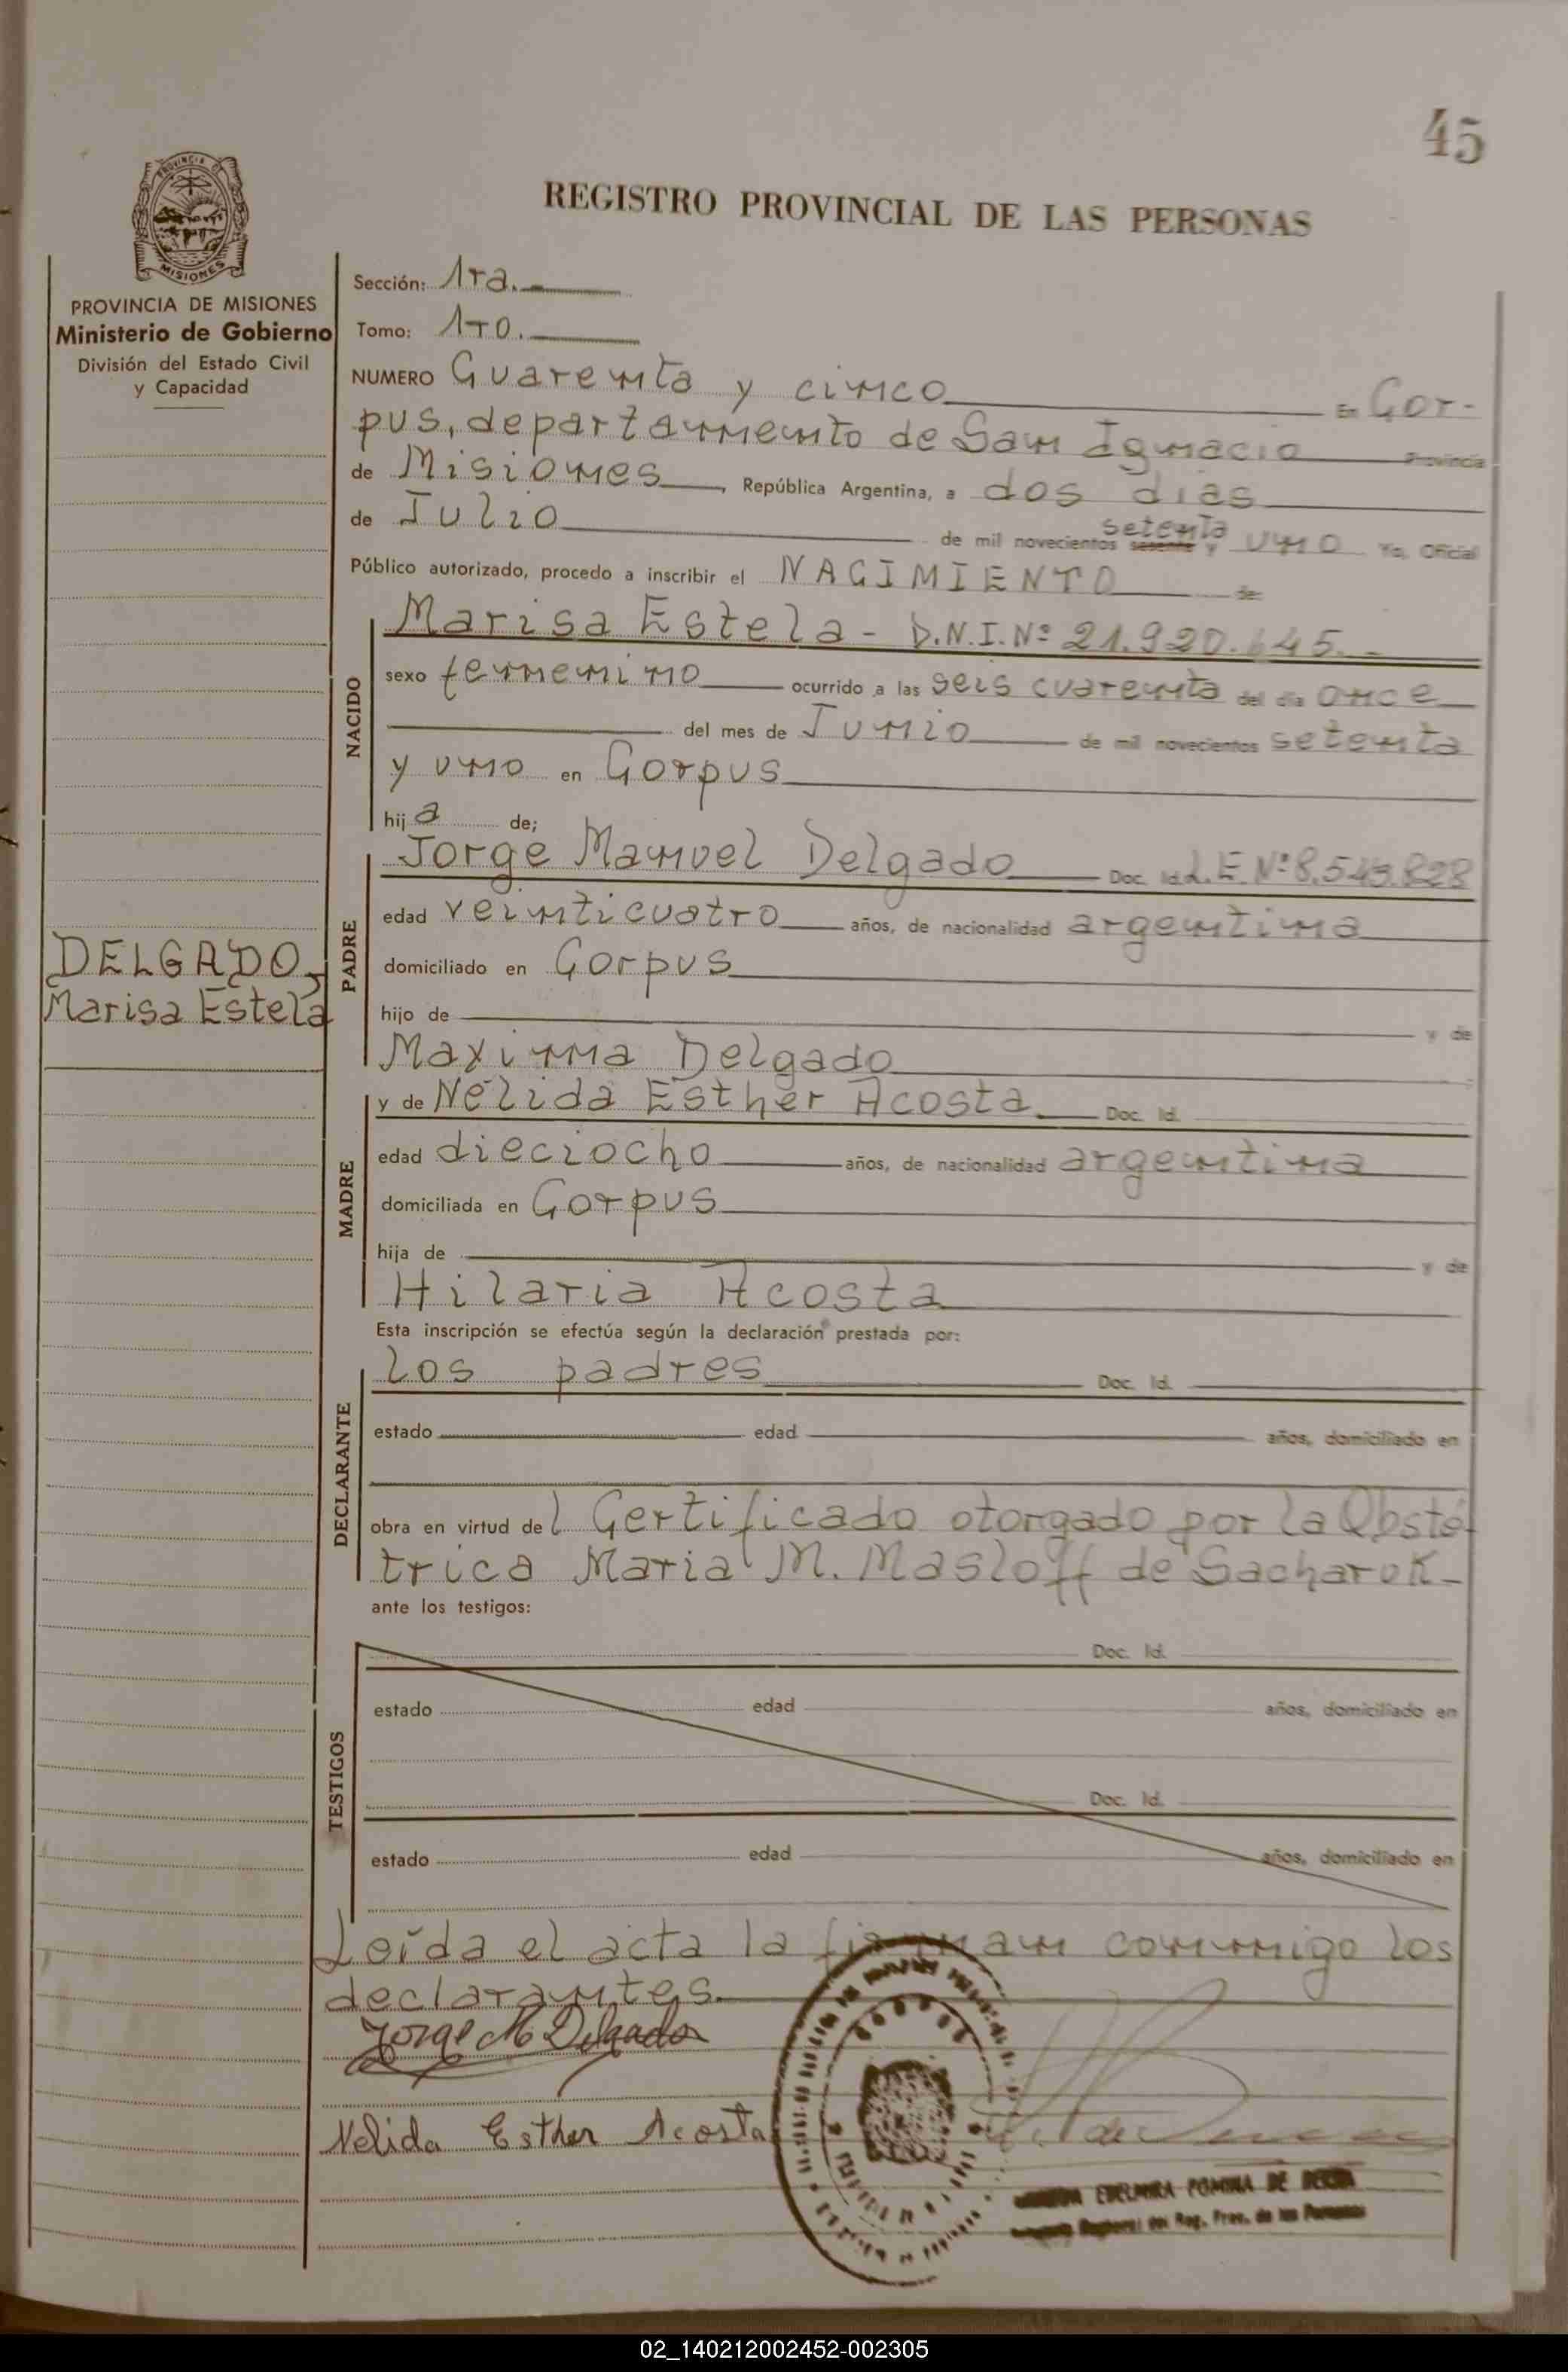 45
REGISTRO PROVINCIAL DE LAS PERSONAS
PROVINCIA DE MISIONES
Ministerio de Gobierno
División del Estado Civil
y Capacidad
Sección: 1ra.
Tomo: 1ro.
NUMERO Cuarenta y cinco En Cor-
pus, departamento de San Ignacio Provincia
de Misiones, República Argentina, a dos dias
de Julio de mil novecientos sesenta setenta y uno Yo, Oficial
Público autorizado, procedo a inscribir el NACIMIENTO de
NACIDO
Marisa Estela - D.N.I. Nº 21.920.645.-
sexo femenino ocurrido a las seis cuarenta del día once
del mes de Junio de mil novecientos setenta
y uno en Corpus
hija de;
PADRE
Jorge Manuel Delgado Doc. Id. L.E. Nº 8.549.828
edad veinticuatro años, de nacionalidad argentina
domiciliado en Corpus
hijo de y de
Maxima Delgado
DELGADO,
Marisa Estela
MADRE
y de Nélida Esther Acosta Doc. Id.
edad dieciocho años, de nacionalidad argentina
domiciliada en Corpus
hija de y de
Hilaria Acosta
Esta inscripción se efectúa según la declaración prestada por:
DECLARANTE
los padres Doc. Id.
estado edad años, domiciliado en
obra en virtud del Certificado otorgado por la Obsté-
trica Maria M. Masloff de Sacharuk-
ante los testigos:
TESTIGOS
Doc. Id.
estado edad años, domiciliado en
Doc. Id.
estado edad años, domiciliado en
Leída el acta la firman conmigo los
declarantes.
Jorge M Delgado
Nelida Esther Acosta
EDELMIRA POMINA DE
del Reg. Prov. de las Personas
02_140212002452-002305